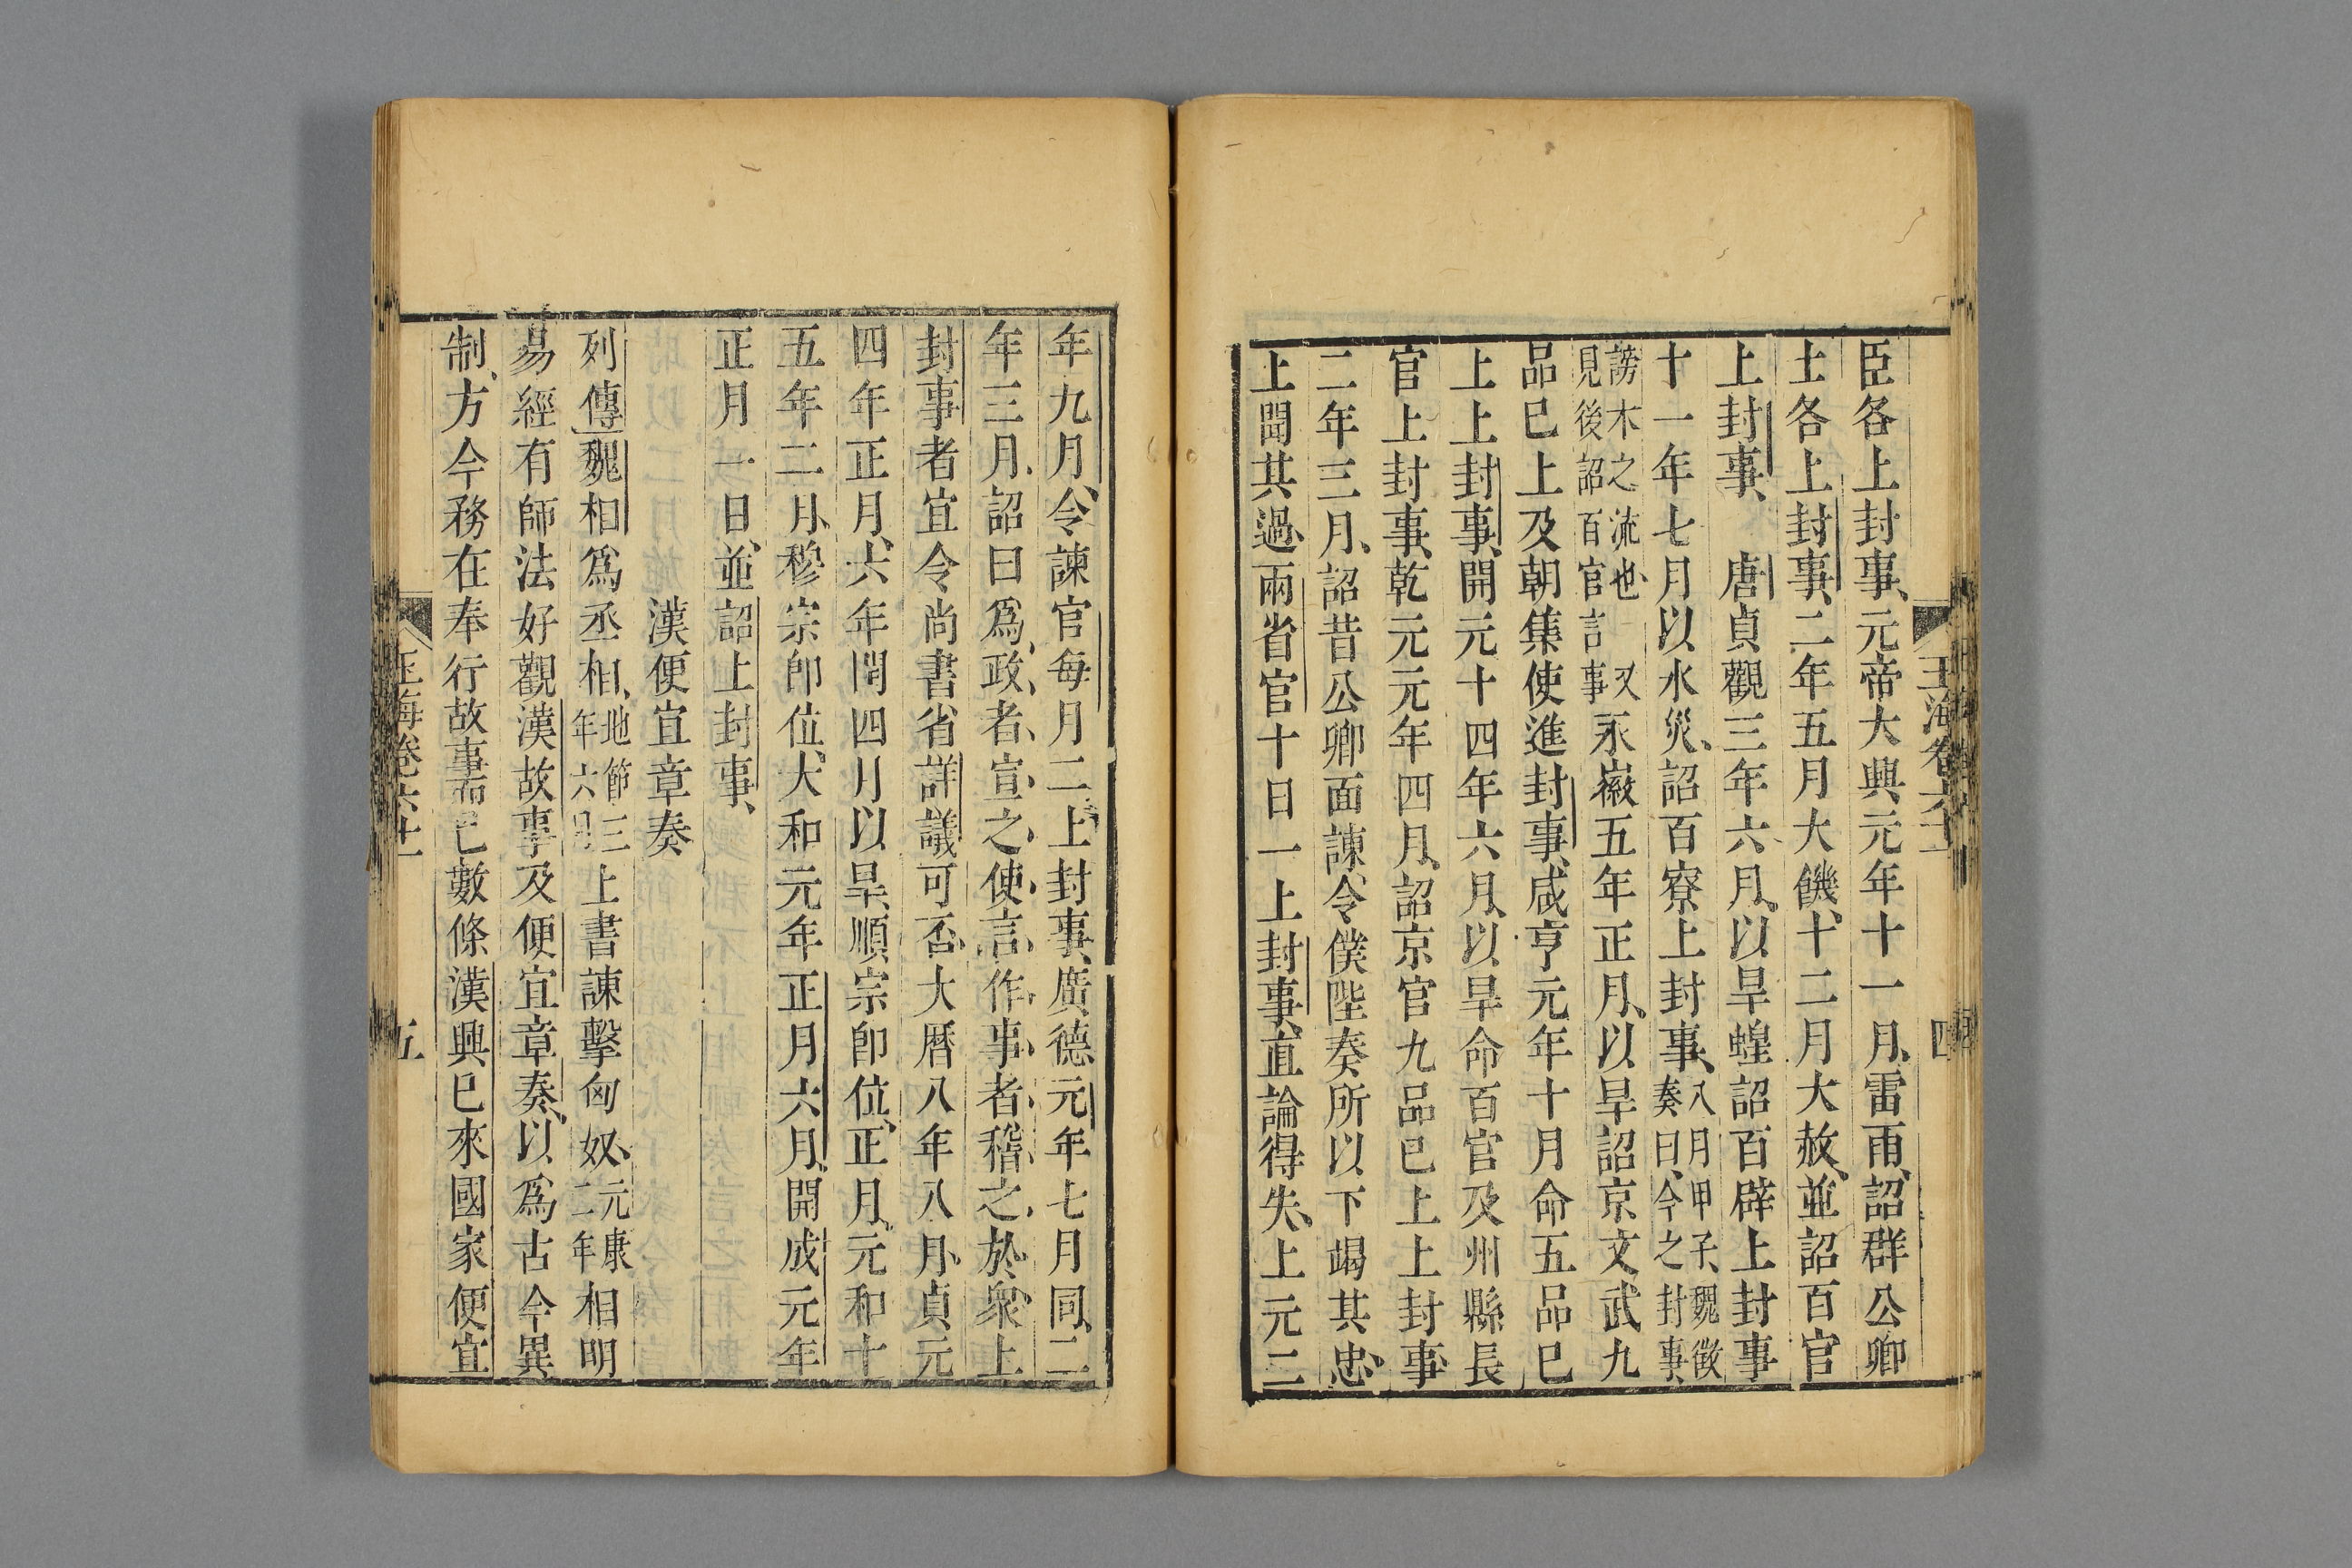 臣各上封事元帝大興元年十一月雷雨詔群公卿
士各上封事二年五月大饑十二月大赦並詔百官
上封事 唐貞觀三年六月以旱蝗詔百辟上封事
十一年七月以水災詔百寮上封事八月甲子魏徵
奏曰今之封事
謗木之流也 又
見後詔百官言事永徽五年正月以旱詔京文武九
品已上及朝集使進封事咸亨元年十月命五品已
上上封事開元十四年六月以旱命百官及州縣長
官上封事乾元元年四月詔京官九品已上上封事
二年三月詔昔公卿面諫令僕陛奏所以下竭其忠
上聞其過兩省官十日一上封事直論得失上元二
玉海卷六十一 四
年九月令諫官每月二上封事廣德元年七月同二
年三月詔曰爲政者宣之使言作事者稽之於衆上
封事者宜令尚書省詳議可否大曆八年八月貞元
四年正月六年閏四月以旱順宗卽位正月元和十
五年二月穆宗卽位大和元年正月六月開成元年
正月一日並詔上封事
漢便宜章奏
列傳魏相爲丞相地節三
年六月上書諫擊匈奴元康
二年相明
易經有師法好觀漢故事及便宜章奏以爲古今異
制方今務在奉行故事而已數條漢興已來國家便宜
玉海卷六十一 五